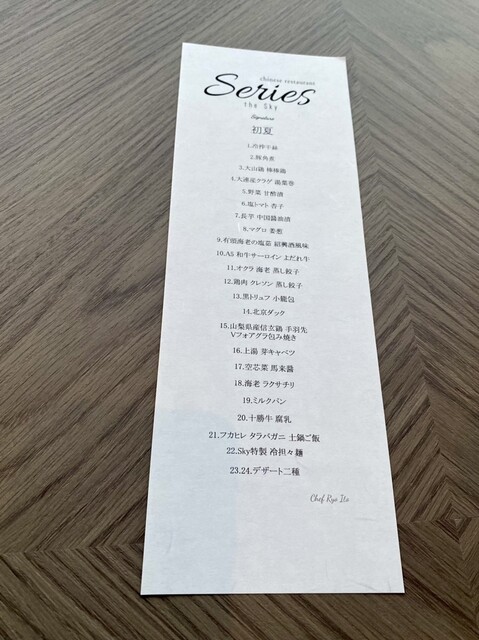 chinese restaurant
Series
the Sky
Signature
初夏
1.冷拌干絲
2.豚角煮
3.大山鶏 棒棒鶏
4.大連産クラゲ 湯葉巻
5.野菜 甘酢漬
6.塩トマト 杏子
7.長芋 中国醤油漬
8.マグロ 姜葱
9.有頭海老の塩茹 紹興酒風味
10.A5 和牛サーロイン よだれ牛
11.オクラ 海老 蒸し餃子
12.鶏肉 クレソン 蒸し餃子
13.黒トリュフ 小籠包
14.北京ダック
15.山梨県産信玄鶏 手羽先
Vフォアグラ包み焼き
16.上湯 芽キャベツ
17.空芯菜 馬来醤
18.海老 ラクサチリ
19.ミルクパン
20.十勝牛 腐乳
21.フカヒレ タラバガニ 土鍋ご飯
22.Sky特製 冷担々麺
23.24.デザート二種
Chef Ryo Ito